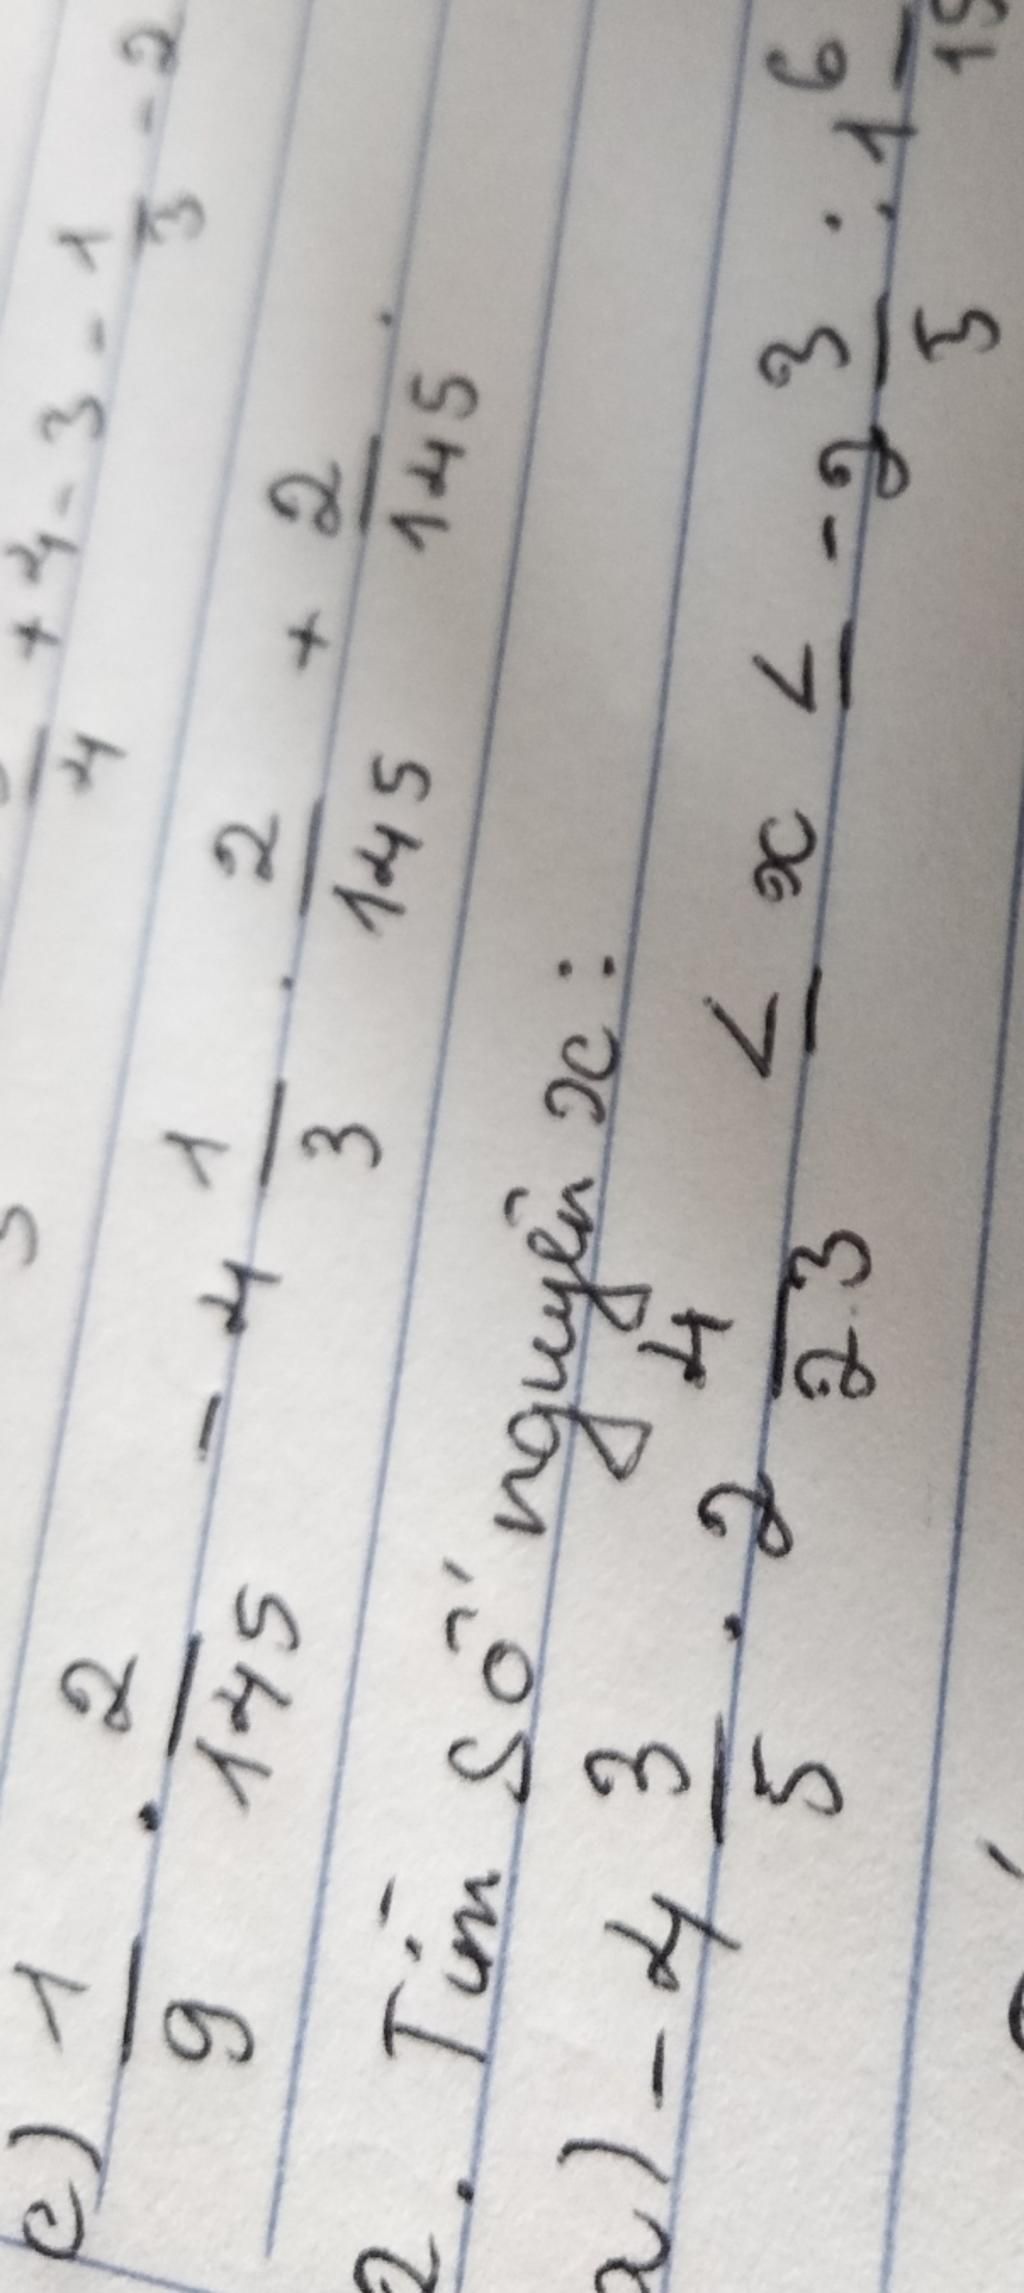 4 + 4 - 3 - 1/3 - 2
c) 1/9 . 2/145 - 4 1/3 . 2/145 + 2/145 .
2. Tìm số nguyên x :
a) - 4 3/5 . 2 4/23 ≤ x ≤ - 2 3/5 : 1 6/15